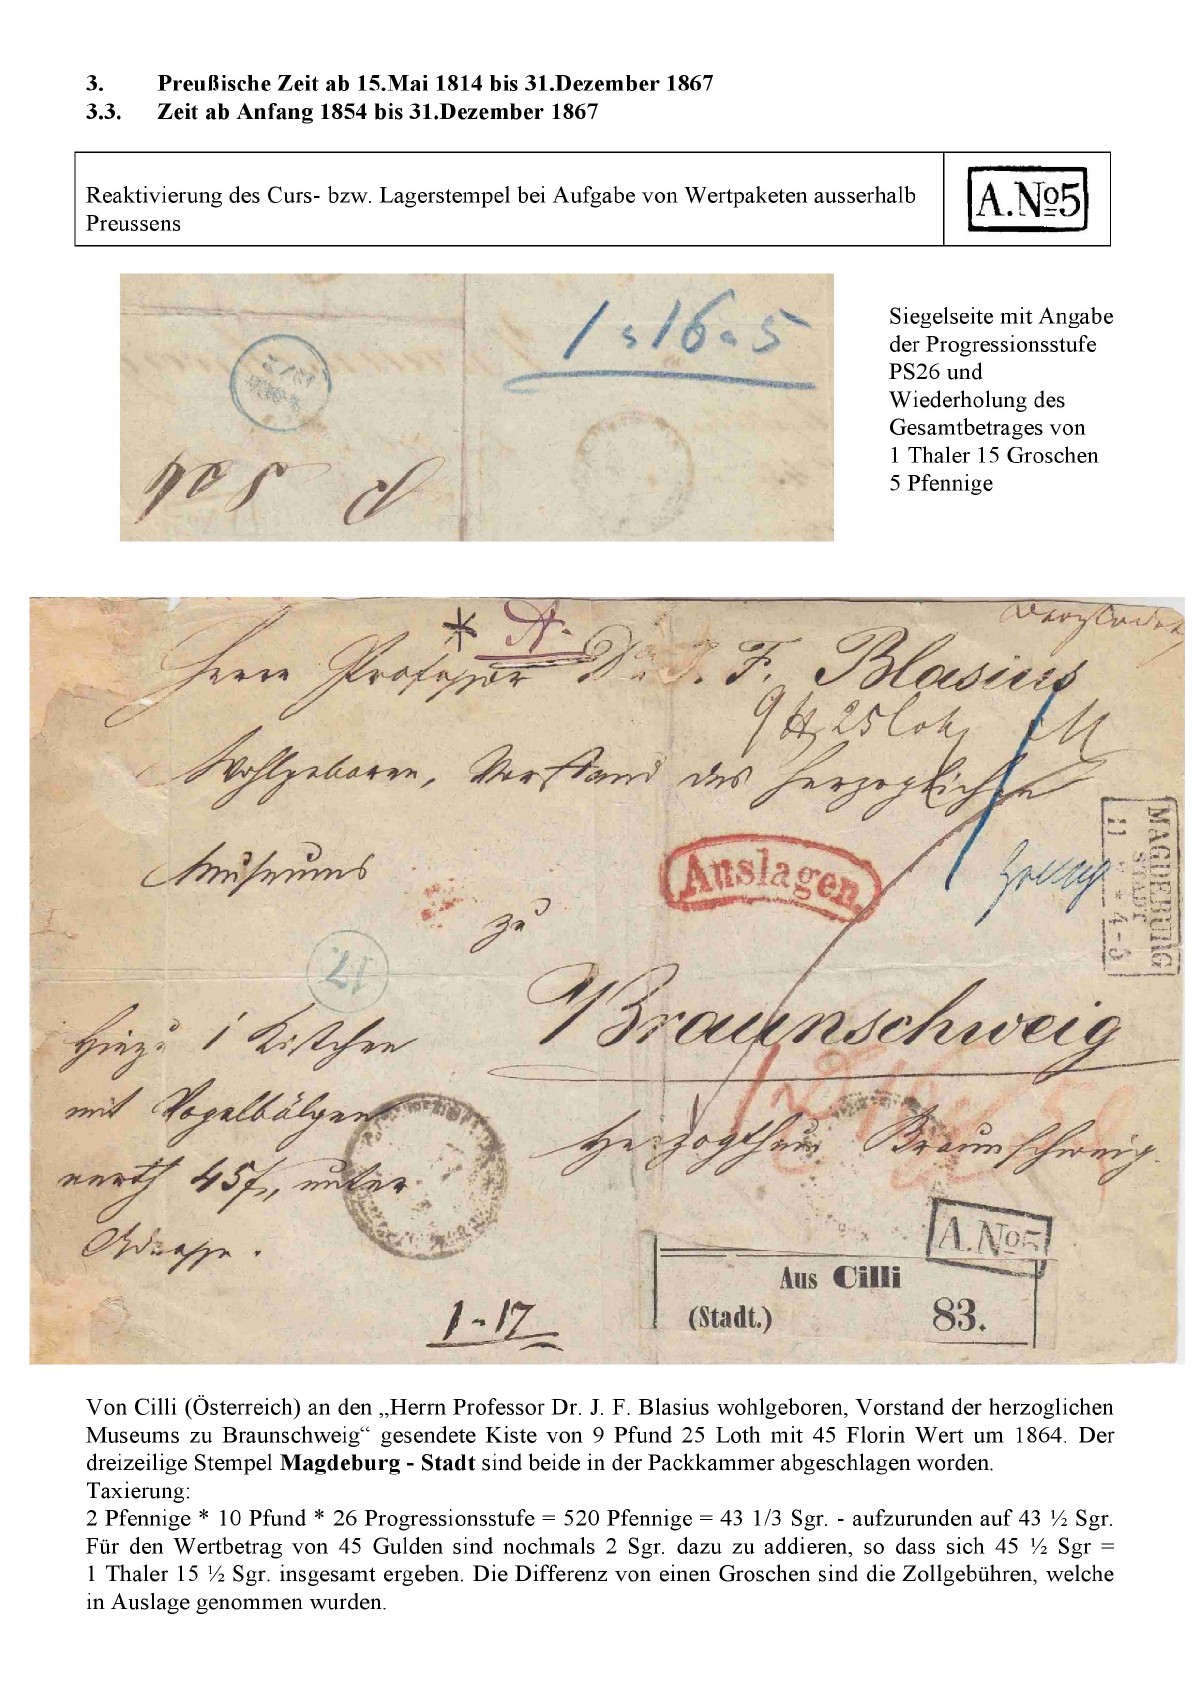 3. Preußische Zeit ab 15.Mai 1814 bis 31.Dezember 1867
3.3. Zeit ab Anfang 1854 bis 31.Dezember 1867
Reaktivierung des Curs- bzw. Lagerstempel bei Aufgabe von Wertpaketen ausserhalb
Preussens
A.No5
1 16 5
Siegelseite mit Angabe
der Progressionsstufe
PS26 und
Wiederholung des
Gesamtbetrages von
1 Thaler 15 Groschen
5 Pfennige
Herrn Professor Dr. J. F. Blasius
9 25 Loth
Wohlgeboren, Vorstand des herzoglichen
Museums
zu
Auslagen.
MAGDEBURG
STADT
11 * 4-
17.
Braunschweig
Hiezu 1 Kistchen
mit Vogelbälgen
werth 45 f, unter
Adresse.
Herzogthum Braunschweig.
A.No5
Aus Cilli
(Stadt.) 83.
1-17
Von Cilli (Österreich) an den „Herrn Professor Dr. J. F. Blasius wohlgeboren, Vorstand der herzoglichen
Museums zu Braunschweig“ gesendete Kiste von 9 Pfund 25 Loth mit 45 Florin Wert um 1864. Der
dreizeilige Stempel Magdeburg - Stadt sind beide in der Packkammer abgeschlagen worden.
Taxierung:
2 Pfennige * 10 Pfund * 26 Progressionsstufe = 520 Pfennige = 43 1/3 Sgr. - aufzurunden auf 43 ½ Sgr.
Für den Wertbetrag von 45 Gulden sind nochmals 2 Sgr. dazu zu addieren, so dass sich 45 ½ Sgr =
1 Thaler 15 ½ Sgr. insgesamt ergeben. Die Differenz von einen Groschen sind die Zollgebühren, welche
in Auslage genommen wurden.